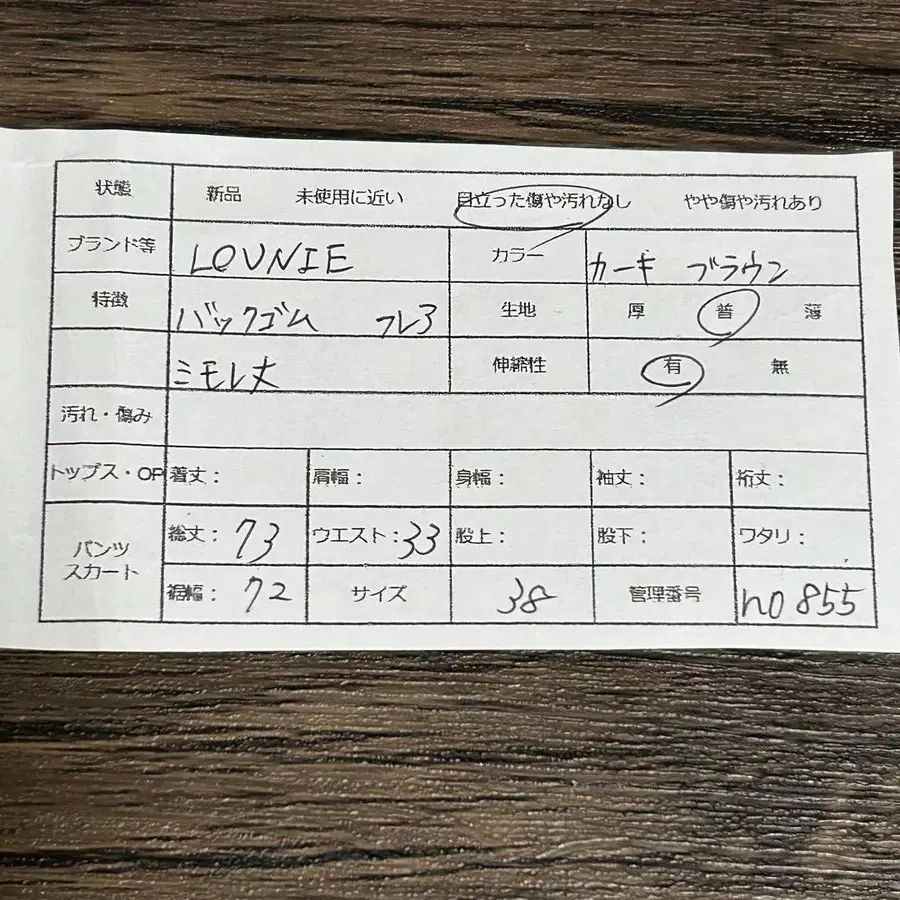 状態 新品 未使用に近い 目立った傷や汚れなし やや傷や汚れあり
ブランド等 LOUNIE カラー カーキ ブラウン
特徴 バックゴム フレア 生地 厚 普 薄
ミモレ丈 伸縮性 有 無
汚れ・傷み
トップス・OP 着丈： 肩幅： 身幅： 袖丈： 裄丈：
パンツ スカート 総丈：73 ウエスト：33 股上： 股下： ワタリ：
裾幅：72 サイズ 38 管理番号 no 855